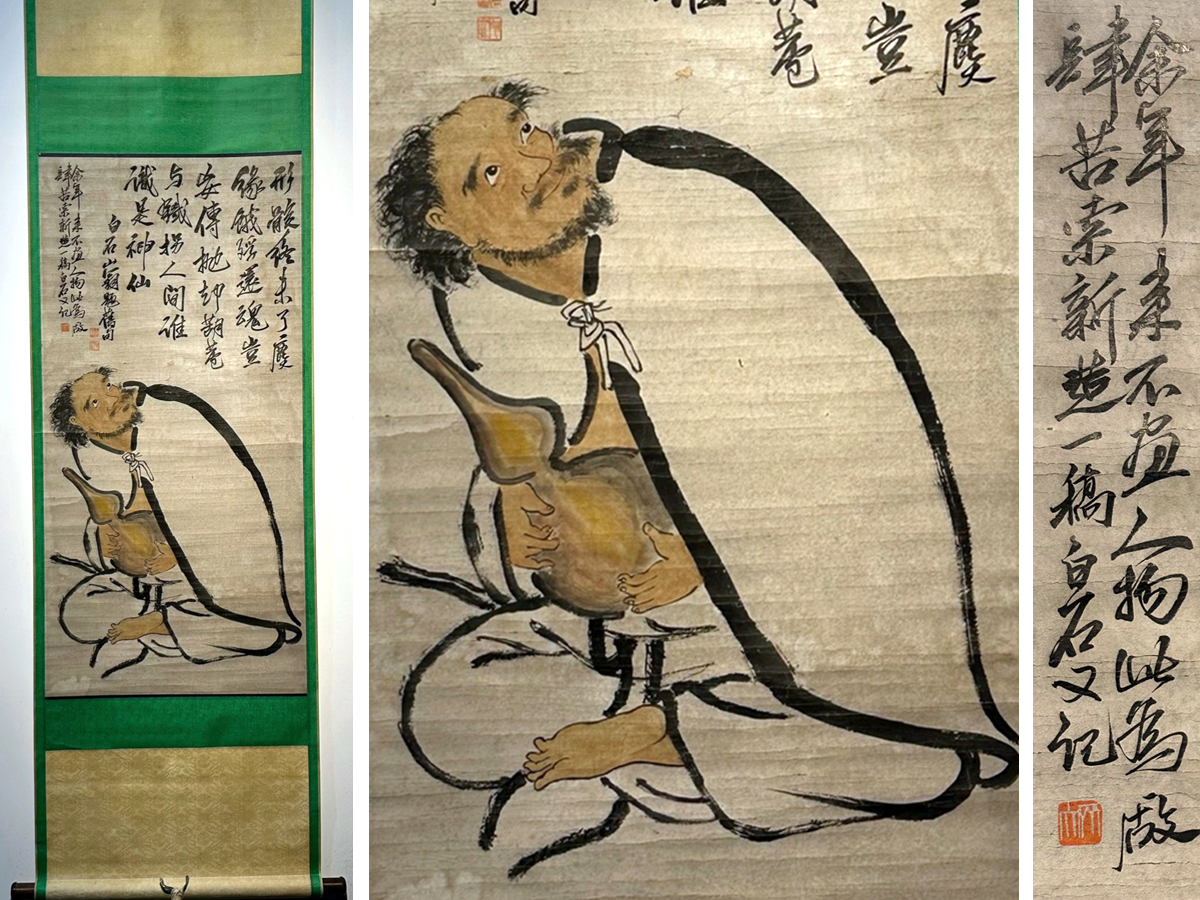 形骸終未了塵
緣餓殍還魂豈
妄傳拋却葫蘆
与鐵拐人間誰
識是神仙
白石山翁題舊句
余年來不畫人物此為厰
肆苦索新造一稿白石又記
塵
豈
蘆
余年來不畫人物此為厰
肆苦索新造一稿白石又記